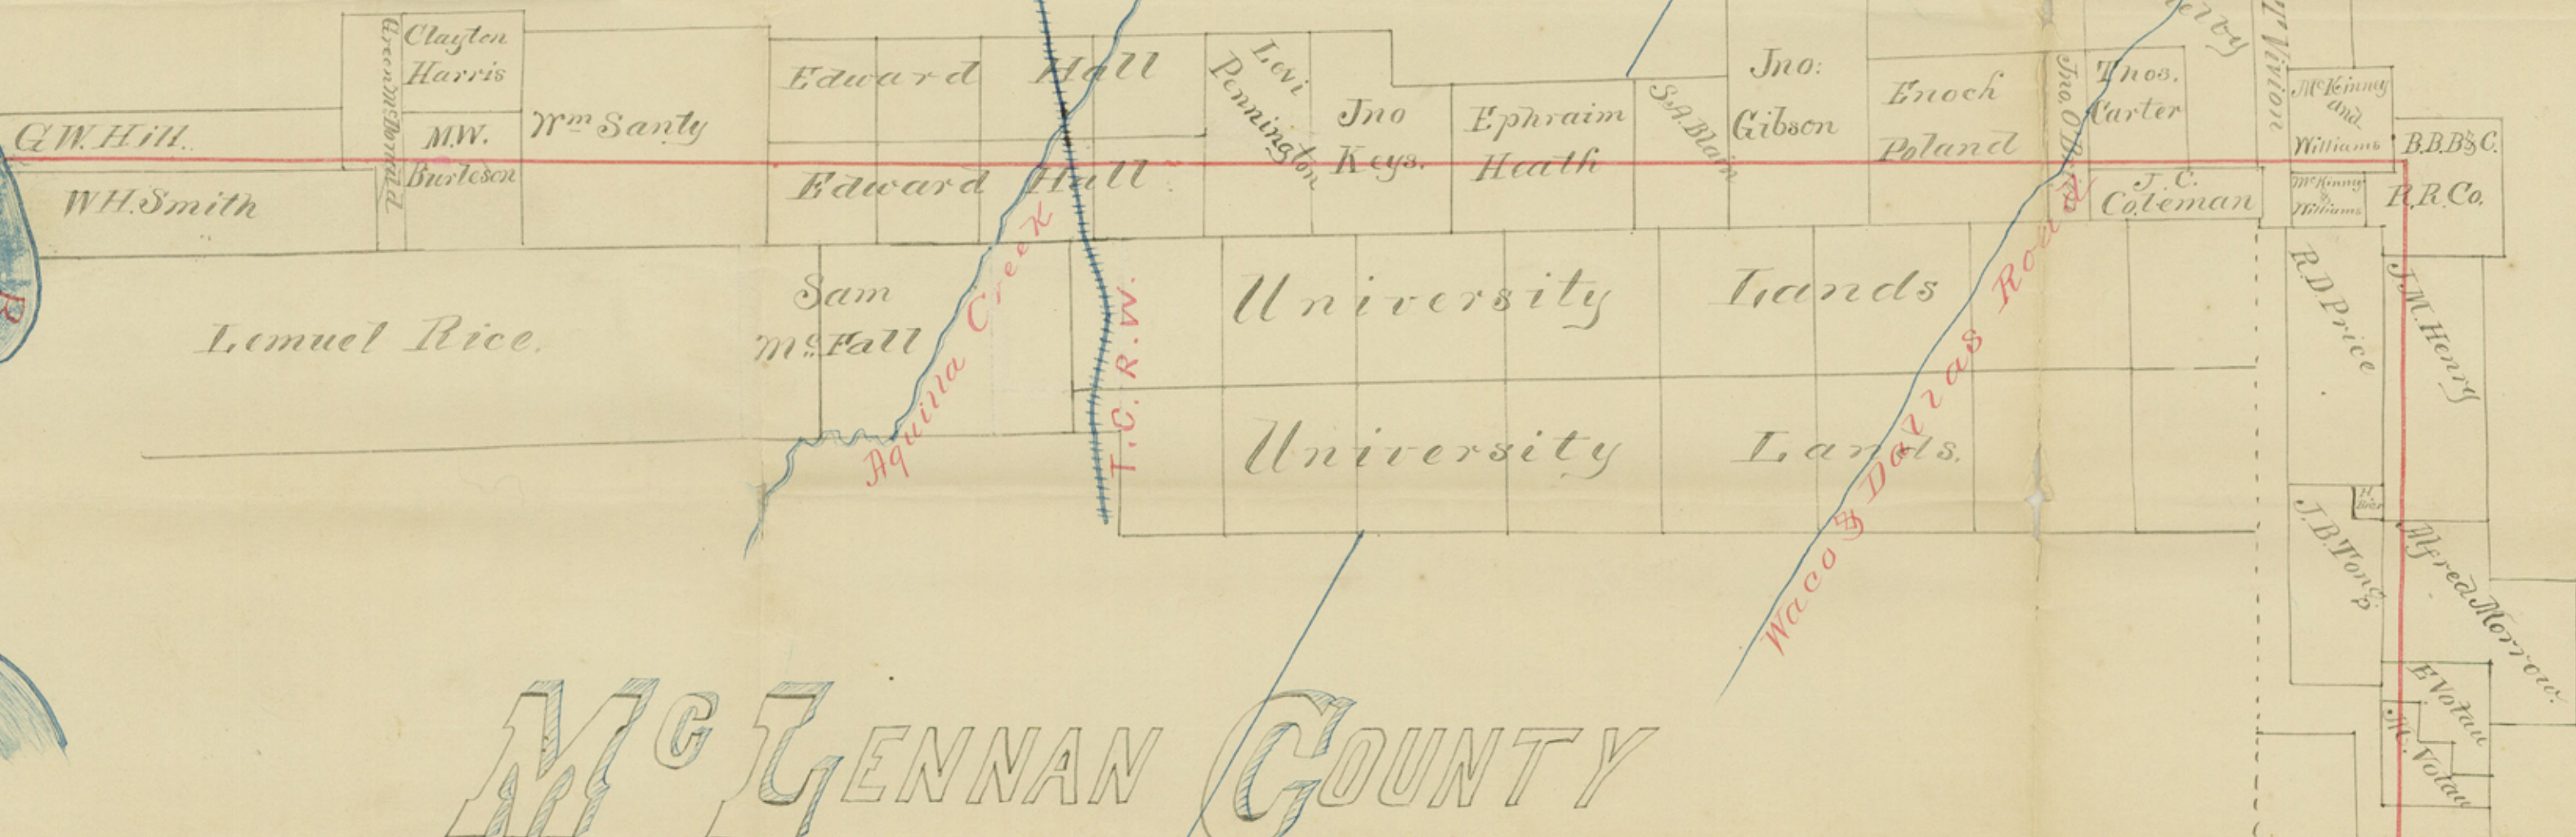 Clayton
Harris
Green McDonald
G.W. Hill.
M.W.
Burleson
Wm Santy
W.H. Smith
Edward Hall
Edward Hall
Levi
Pennington
Jno
Keys.
Ephraim
Heath
S.A. Blain
Jno:
Gibson
Enoch
Poland
Thos.
Carter
J. C.
Coleman
Vivion
McKinney
and
Williams
McKinney
&
Williams
B.B.B. & C.
R.R. Co.
R
Lemuel Rice.
Sam
McFall
Aquilla Creek
T.C.R.W.
University Lands
University Lands.
Waco & Dallas Road
R.D. Price
J.M. Henry
J.B. Tong
Alfred Morrow.
E Votau
M. Votau
McLENNAN COUNTY